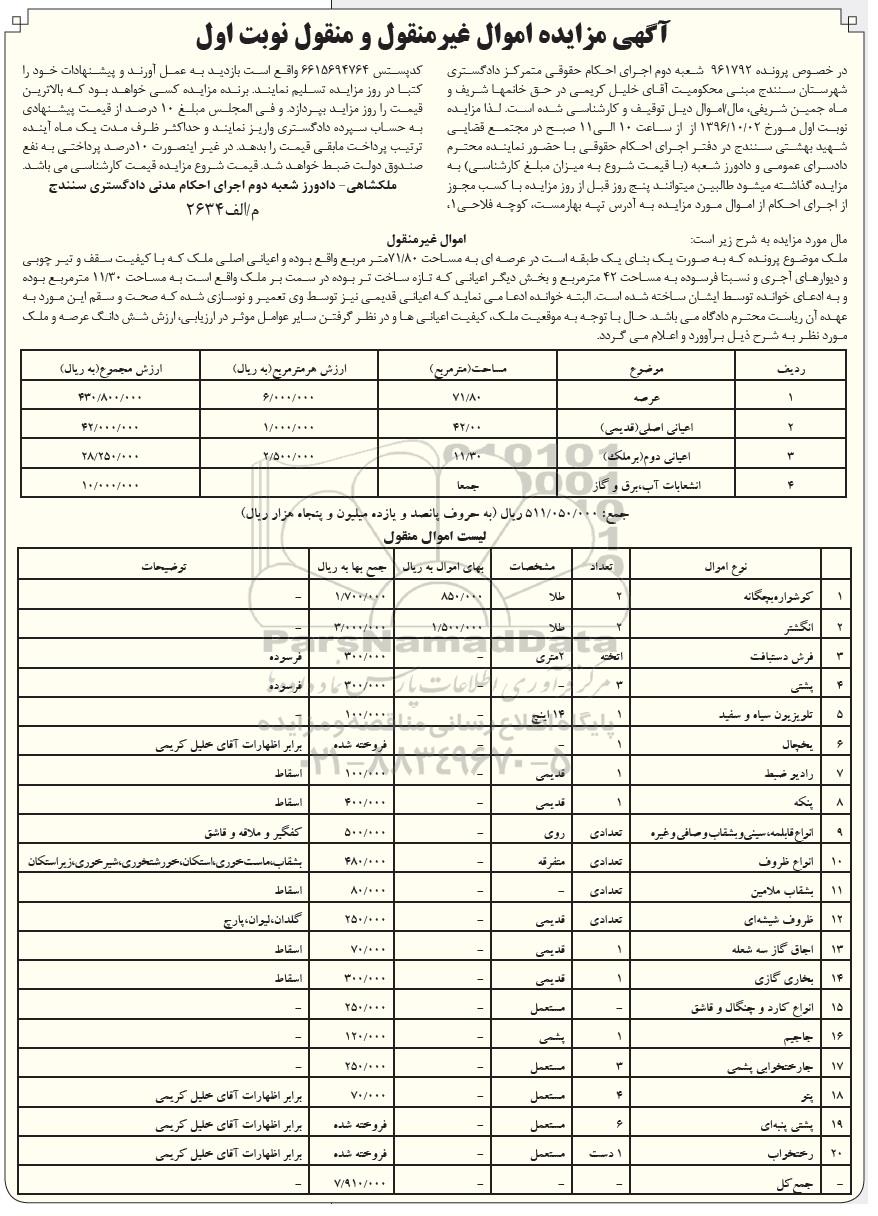 آگهی مزایده اموال غیرمنقول و منقول نوبت اول
در خصوص پرونده ۹۶۱۷۹۲ شعبه دوم اجرای احکام حقوقی متمرکز دادگستری
شهرستان سنندج مبنی محکومیت آقای خلیل کریمی در حق خانمها شریف و
ماه جمین شریفی، مال/اموال دیل توقیف و کارشناسی شده است. لذا مزایده
نوبت اول مورخ ۱۳۹۶/۱۰/۰۲ از از ساعت ۱۰ الی ۱۱ صبح در مجتمع قضایی
شهید بهشتی سنندج در دفتر اجرای احکام حقوقی با حضور نماینده محترم
دادسرای عمومی و دادورز شعبه (با قیمت شروع به میزان مبلغ کارشناسی) به
مزایده گذاشته میشود طالبین میتوانند پنج روز قبل از روز مزایده با کسب مجوز
از اجرای احکام از اموال مورد مزایده به آدرس تپه بهارمست، کوچه فلاحی۱،
کدپستس ۶۶۱۵۶۹۴۷۶۴ واقع است بازدید به عمل آورند و پیشنهادات خود را
کتبا در روز مزایده تسلیم نمایند. برنده مزایده کسی خواهد بود که بالاترین
قیمت را روز مزاید بپردازد. و فی المجلس مبلغ ۱۰ درصد از قیمت پیشنهادی
به حساب سپرده دادگستری واریز نمایند و حداکثر ظرف مدت یک ماه آینده
ترتیب پرداخت مابقی قیمت را بدهد. در غیر اینصورت ۱۰درصد پرداختی به نفع
صندوق دولت ضبط خواهد شد. قیمت شروع مزایده قیمت کارشناسی می باشد.
ملکشاهی- دادورز شعبه دوم اجرای احکام مدنی دادگستری سنندج
م/الف ۲۶۳۴
مال مورد مزایده به شرح زیر است:
اموال غیرمنقول
ملک موضوع پرونده که به صورت یک بنای یک طبقه است در عرصه ای به مساحت ۷۱/۸۰متر مربع واقع بوده و اعیانی اصلی ملک که با کیفیت سقف و تیر چوبی
و دیوارهای آجری و نسبتا فرسوده به مساحت ۴۲ مترمربع و بخش دیگر اعیانی که تازه ساخت تر بوده در سمت بر ملک واقع است به مساحت ۱۱/۳۰ مترمربع بوده
و به ادعای خوانده توسط ایشان ساخته شده است. البته خوانده ادعا می نماید که اعیانی قدیمی نیز توسط وی تعمیر و نوسازی شده که صحت و سقم این مورد به
عهده آن ریاست محترم دادگاه می باشد. حال با توجه به موقعیت ملک، کیفیت اعیانی ها و در نظر گرفتن سایر عوامل موثر در ارزیابی، ارزش شش دانگ عرصه و ملک
مورد نظر به شرح ذیل برآوورد و اعلام می گردد.
ردیف موضوع مساحت(مترمربع) ارزش هرمترمربع(به ریال) ارزش مجموع(به ریال)
۱ عرصه ۷۱/۸۰ ۶/۰۰۰/۰۰۰ ۴۳۰/۸۰۰/۰۰۰
۲ اعیانی اصلی(قدیمی) ۴۲/۰۰ ۱/۰۰۰/۰۰۰ ۴۲/۰۰۰/۰۰۰
۳ اعیانی دوم(برملک) ۱۱/۳۰ ۲/۵۰۰/۰۰۰ ۲۸/۲۵۰/۰۰۰
۴ انشعابات آب،برق و گاز جمعا ۱۰/۰۰۰/۰۰۰
جمع: ۵۱۱/۰۵۰/۰۰۰ ریال (به حروف پانصد و یازده میلیون و پنجاه هزار ریال)
لیست اموال منقول
نوع اموال تعداد مشخصات بهای اموال به ریال جمع بها به ریال توضیحات
۱ کوشواره‌بچگانه ۲ طلا ۸۵۰/۰۰۰ ۱/۷۰۰/۰۰۰ -
۲ انگشتر ۲ طلا ۱/۵۰۰/۰۰۰ ۳/۰۰۰/۰۰۰ -
۳ فرش دستبافت اتخته ۲متری - ۳۰۰/۰۰۰ فرسوده
۴ پشتی ۳ - - ۳۰۰/۰۰۰ فرسوده
۵ تلویزیون سیاه و سفید ۱ ۱۴ اینچ - ۱۰۰/۰۰۰ -
۶ یخچال ۱ - - فروخته شده برابر اظهارات آقای خلیل کریمی
۷ رادیو ضبط ۱ قدیمی - ۱۰۰/۰۰۰ اسقاط
۸ پنکه ۱ قدیمی - ۴۰۰/۰۰۰ اسقاط
۹ انواع‌قابلمه،سینی‌وبشقاب‌وصافی‌وغیره تعدادی روی - ۵۰۰/۰۰۰ کفگیر و ملاقه و قاشق
۱۰ انواع ظروف تعدادی متفرقه - ۴۸۰/۰۰۰ بشقاب،ماست‌خوری،استکان،خورشتخوری،شیرخوری،زیراستکان
۱۱ بشقاب ملامین تعدادی - - ۸۰/۰۰۰ اسقاط
۱۲ ظروف شیشه‌ای تعدادی قدیمی - ۲۵۰/۰۰۰ گلدان،لیوان،پارچ
۱۳ اجاق گاز سه شعله ۱ قدیمی - ۷۰/۰۰۰ اسقاط
۱۴ بخاری گازی ۱ قدیمی - ۳۰۰/۰۰۰ اسقاط
۱۵ انواع کارد و چنگال و قاشق - مستعمل - ۲۵۰/۰۰۰ -
۱۶ جاجیم ۱ پشمی - ۱۲۰/۰۰۰ -
۱۷ جارختخوابی پشمی ۳ مستعمل - ۲۵۰/۰۰۰ -
۱۸ پتو ۴ مستعمل - ۷۰/۰۰۰ برابر اظهارات آقای خلیل کریمی
۱۹ پشتی پنبه‌ای ۶ مستعمل - فروخته شده برابر اظهارات آقای خلیل کریمی
۲۰ رختخواب ۱ دست مستعمل - فروخته شده برابر اظهارات آقای خلیل کریمی
- جمع‌کل - - - ۷/۹۱۰/۰۰۰ -
ParsNamadData
پایگاه اطلاع رسانی مناقصه و مزایده
۰۲۱-۸۸۳۴۹۶۷۰-۵